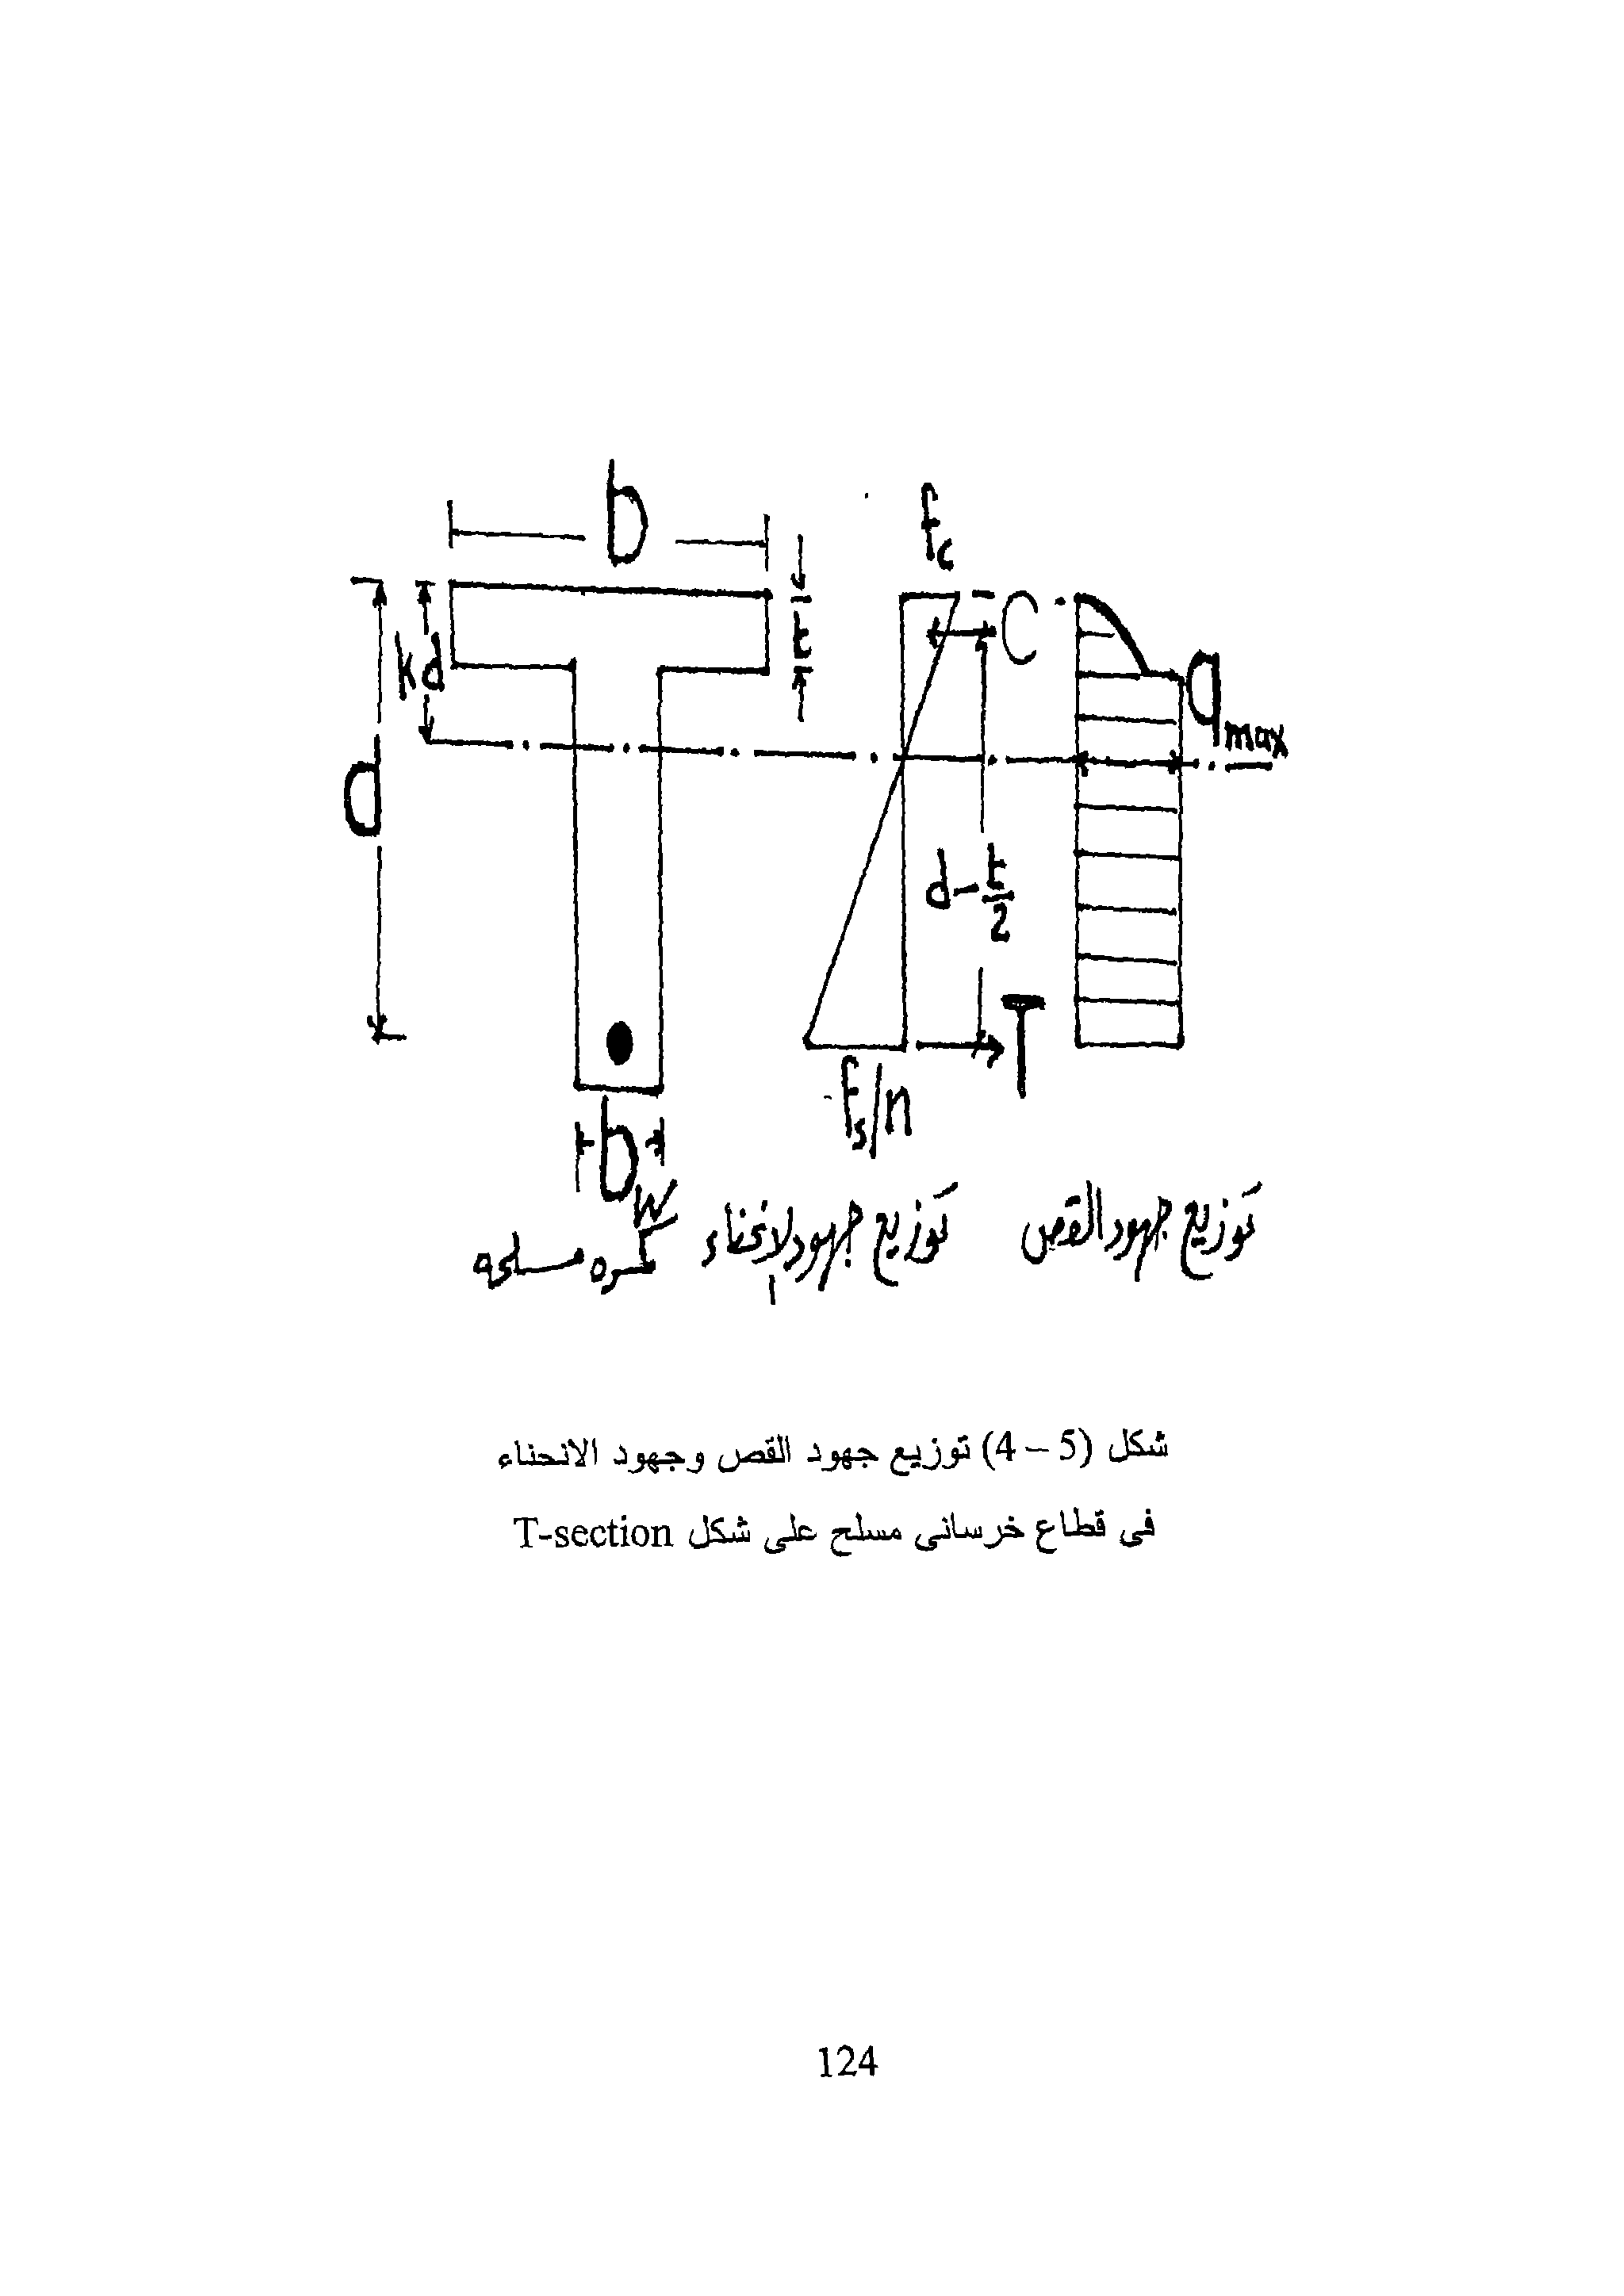 b
f_c
t
C
kd
q_max
d
d - t/2
T
f_s/n
b_w
توزيع جهود القص
توزيع جهود الانحناء
كمره مسلحه
شكل (5 – 4) توزيع جهود القص وجهود الانحناء
فى قطاع خرسانى مسلح على شكل T-section
124